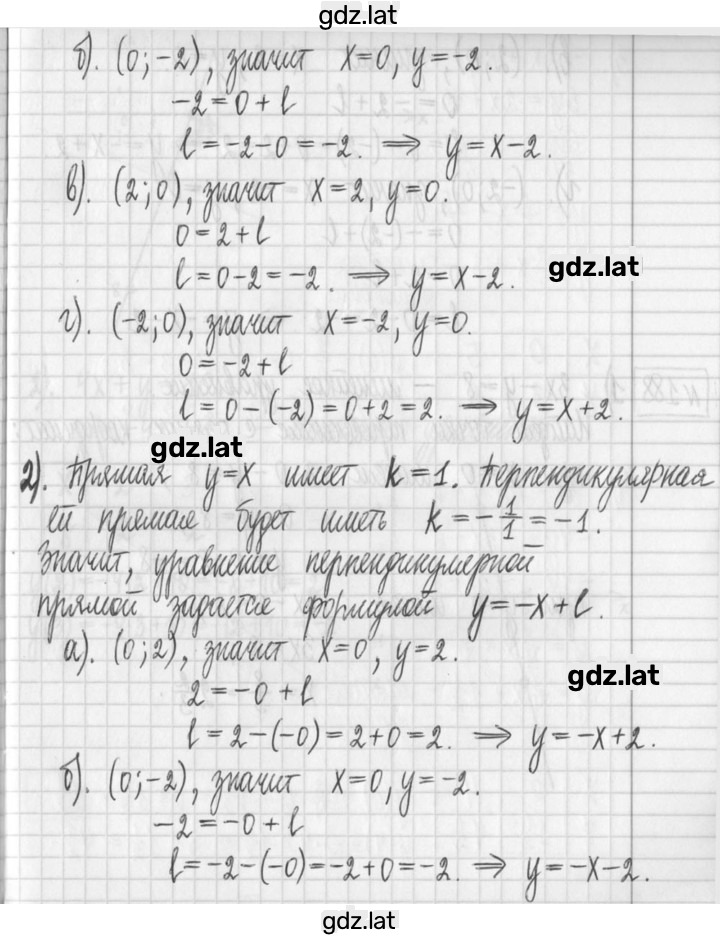 gdz.lat
б). (0; -2), значит x=0, y=-2.
-2=0+l
l=-2-0=-2. ⟹ y=x-2.
в). (2;0), значит x=2, y=0.
0=2+l
l=0-2=-2. ⟹ y=x-2.
gdz.lat
г). (-2;0), значит x=-2, y=0.
0=-2+l
l=0-(-2)=0+2=2. ⟹ y=x+2.
gdz.lat
2). Прямая y=x имеет k=1. Перпендикулярная
ей прямая будет иметь k=-1/1=-1.
Значит, уравнение перпендикулярной
прямой задается формулой y=-x+l.
а). (0;2), значит x=0, y=2.
gdz.lat
2=-0+l
l=2-(-0)=2+0=2. ⟹ y=-x+2.
б). (0;-2), значит x=0, y=-2.
-2=-0+l
l=-2-(-0)=-2+0=-2. ⟹ y=-x-2.
gdz.lat